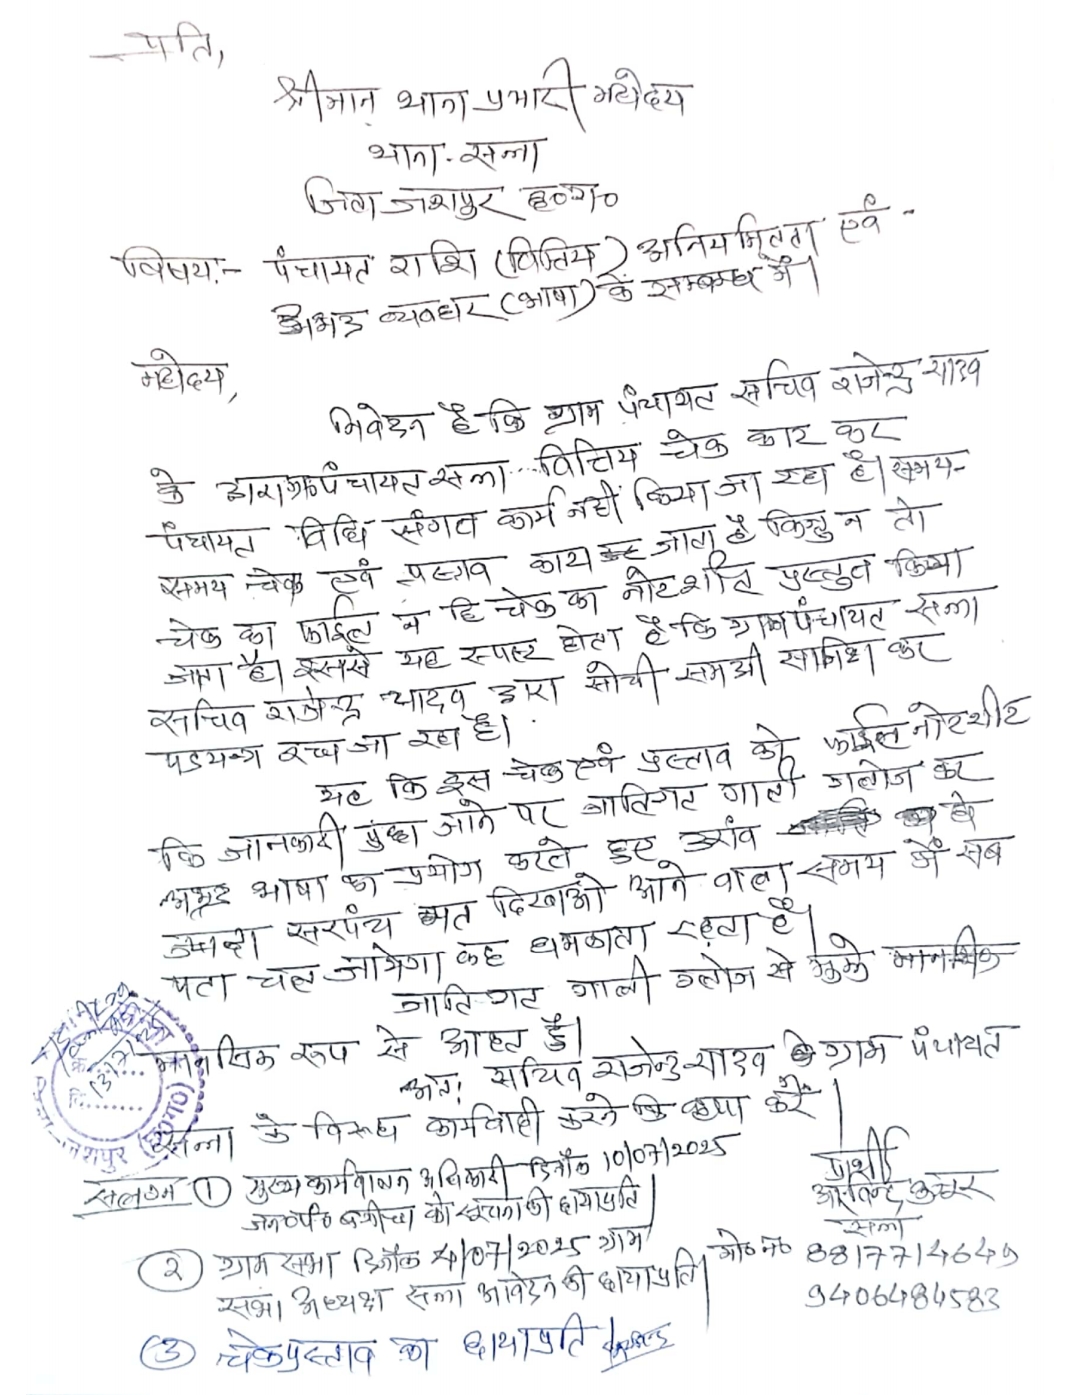 प्रति,
श्रीमान् थाना प्रभारी महोदय
थाना - सन्ना
जिला जशपुर छ०ग०
विषय:- पंचायत राशि (वित्तिय) अनियमितता एवं -
अभद्र व्यवहार (भाषा) के सम्बन्ध में।
महोदय,
निवेदन है कि ग्राम पंचायत सचिव राजेन्द्र यादव
के द्वारा ग्रा० पंचायत सन्ना वित्तिय चेक काट कर
पंचायत विधि संगत कार्य नहीं किया जा रहा है। समय-
समय चेक एवं प्रस्ताव काटा जाता है किन्तु न तो
चेक का फाईल न हि चेक का नोटशीट प्रस्तुत किया
जाता है। इससे यह स्पष्ट होता है कि ग्राम पंचायत सन्ना
सचिव राजेन्द्र यादव द्वारा सोची समझी साजिश कर
षडयन्त्र रच्चा जा रहा है।
यह कि इस चेक एवं प्रस्ताव को फाईल नोटशीट
कि जानकारी पुछा जाने पर जातिगत गाली गलोज कर
अभद्र भाषा का प्रयोग करते हुए उरांव हो
ज्यादा सरपंच मत दिखाओ आने वाला समय में सब
पता चल जायेगा कह धमकाता रहता है।
जातिगत गाली गलोज से मुझे मानसिक
मानसिक रूप से आहत है।
अत: सचिव राजेन्द्र यादव ग्राम पंचायत
सन्ना के विरूध कार्यवाही करने कि कृपा करें।
संलग्न ① मुख्यकार्यपालन अधिकारी दिनाँक 10/07/2025
जन०पं० बगीचा को सूचना की छायाप्रति
② ग्राम सभा दिनाँक 4/07/2025 ग्राम
सभा अध्यक्ष सन्ना आवेदन की छायाप्रति
③ चेक प्रस्ताव का छायाप्रति
प्रार्थी
अरविन्द कुजूर
सन्ना
मो० न० 8817714649
9406484583
जशपुर (छ०ग०)